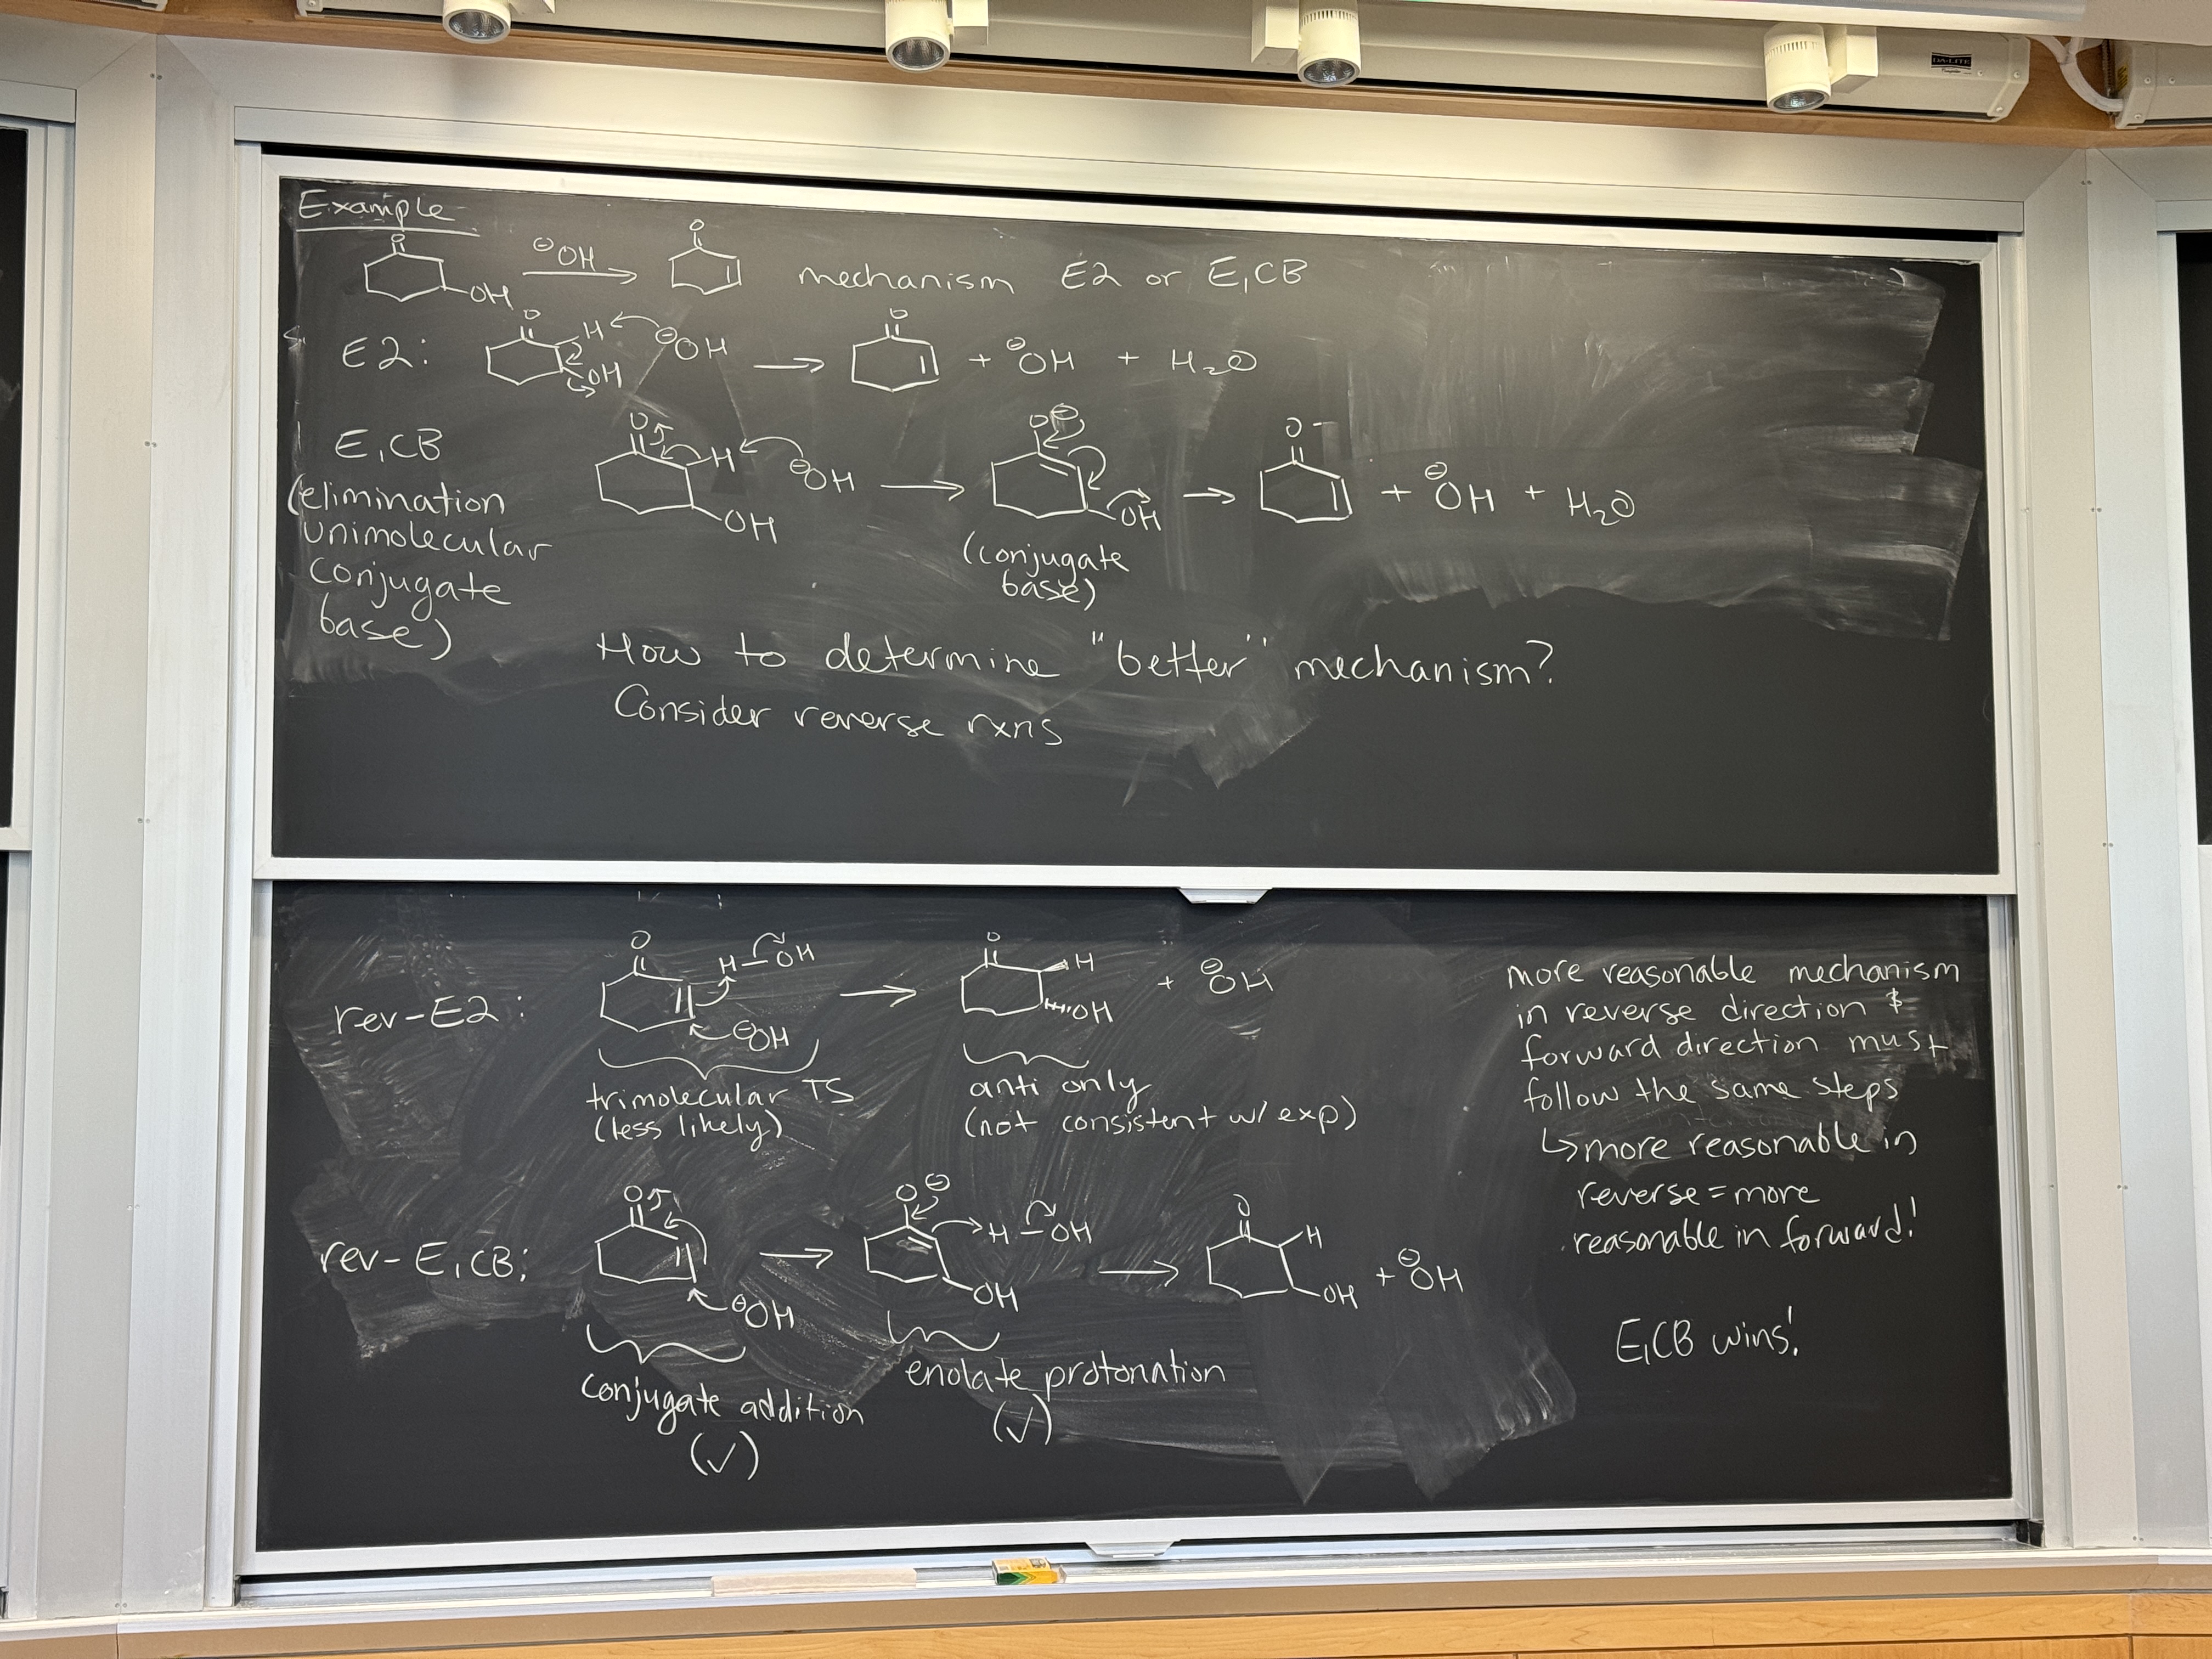 Example
O
OH
⊖OH
O
mechanism E2 or E₁CB
E2:
O
H
OH
⊖OH
O
+ ⊖OH + H₂O
E₁CB
(elimination
unimolecular
conjugate
base)
O
H
OH
⊖OH
O⊖
OH
(conjugate
base)
O
+ ⊖OH + H₂O
How to determine "better" mechanism?
Consider reverse rxns
rev-E2:
O
H-OH
⊖OH
trimolecular TS
(less likely)
O
H
OH
+ ⊖OH
anti only
(not consistent w/ exp)
rev-E₁CB:
O
⊖OH
conjugate addition
(✓)
O⊖
H-OH
OH
enolate protonation
(✓)
O
H
OH
+ ⊖OH
more reasonable mechanism
in reverse direction &
forward direction must
follow the same steps
↳more reasonable in
reverse = more
reasonable in forward!
E₁CB wins!
DA-LITE